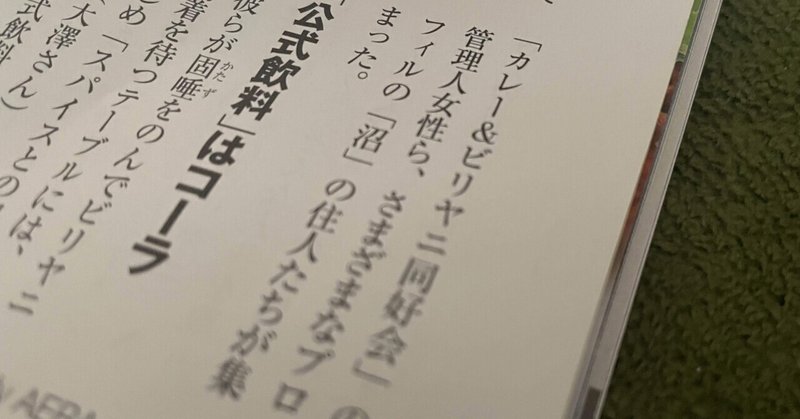 「カレー&ビリヤニ同好会」の
管理人女性ら、さまざまなプロ
フィルの「沼」の住人たちが集
まった。
公式飲料」はコーラ
彼らが固唾をのんでビリヤニ
かたず
着を待つテーブルには、
め「スパイスとの
大澤さん）
式飲料
AERA